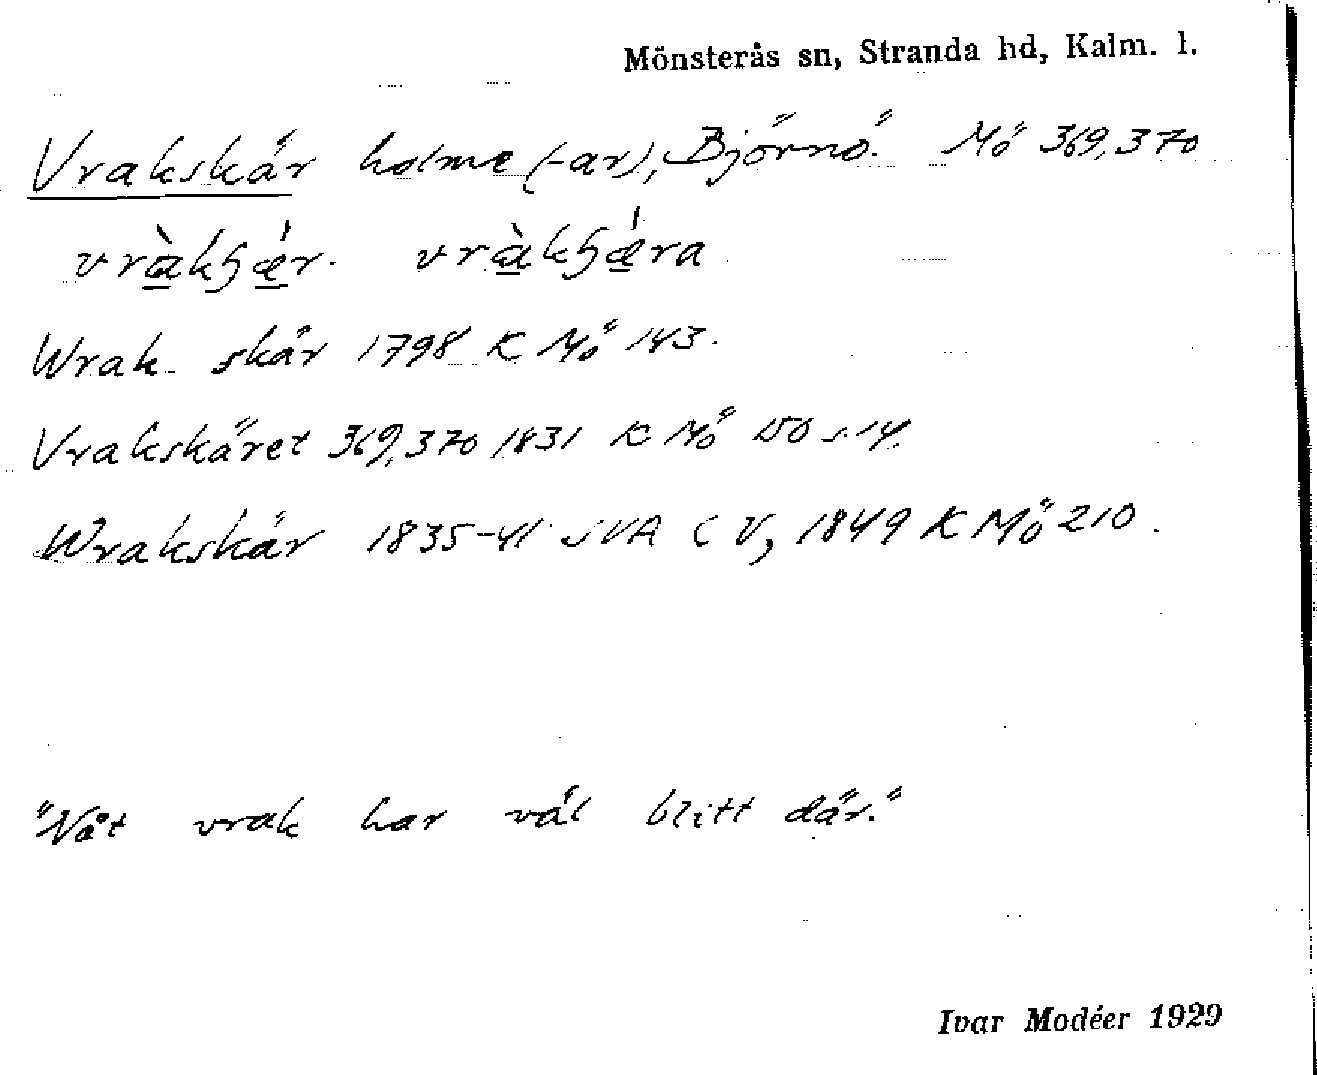 Mönsterås sn, Stranda hd, Kalm. l.
Vrakskär holme (-ar), Björnö. Mö 369,370
vràkʂǽr. vràkʂǽra
Wrak-skär 1798 K Mö 143.
Vrakskäret 369,370 1831 K Mö 150 s.14.
Wrakskär 1835-41 SVA C V, 1849 K Mö 210.
"Nåt vrak har väl blitt där."
Ivar Modéer 1929